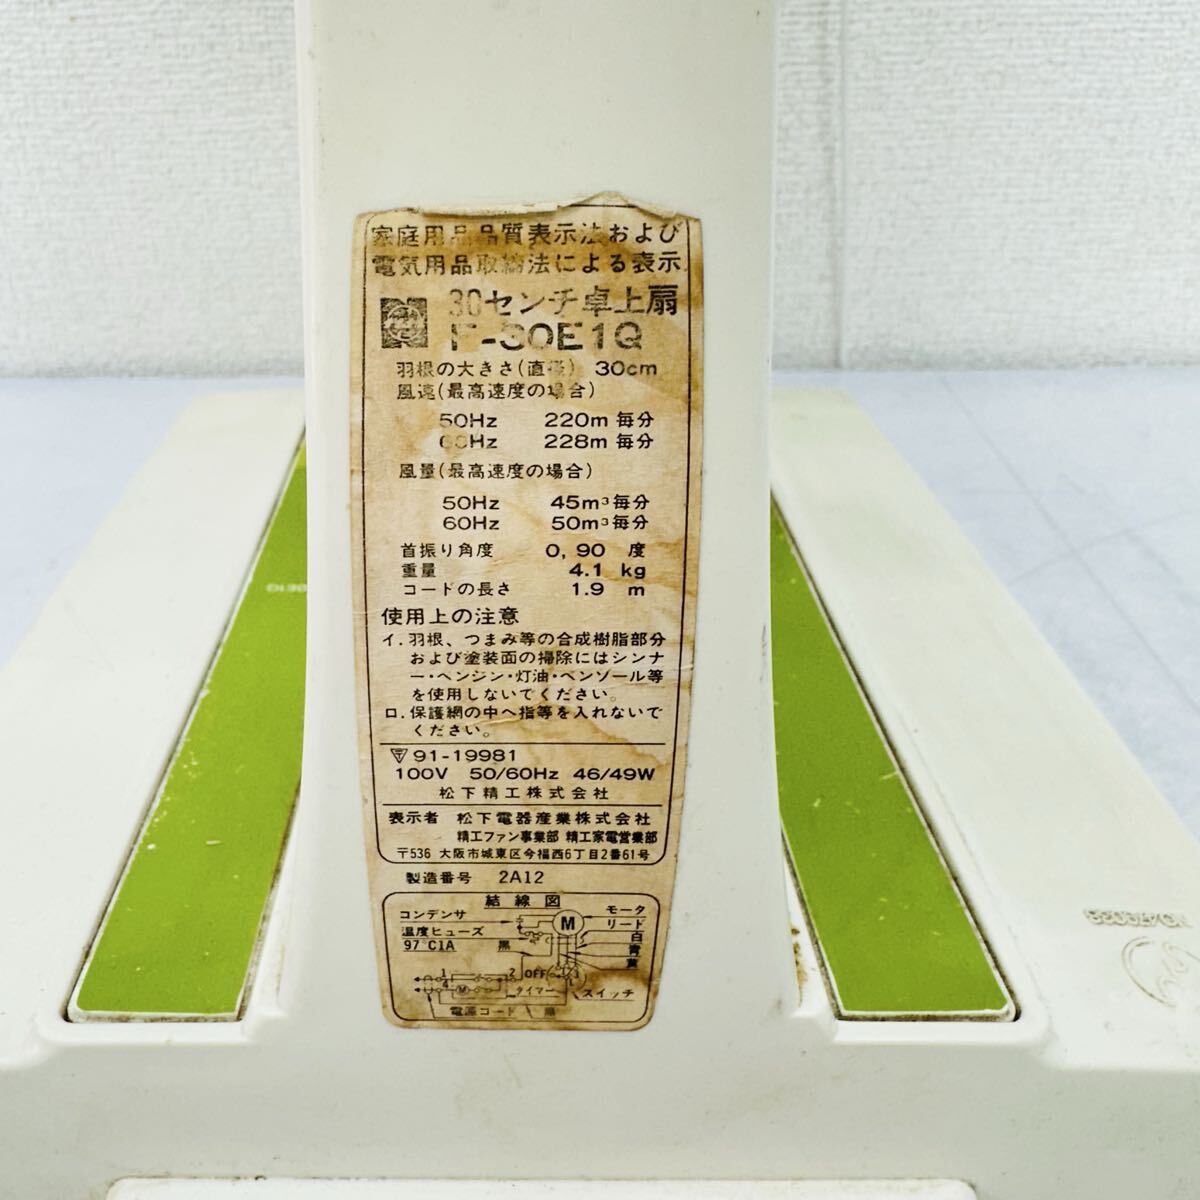 家庭用品品質表示法および
電気用品取締法による表示
30センチ卓上扇
F-30E1Q
羽根の大きさ(直径) 30cm
風速(最高速度の場合)
50Hz 220m 毎分
60Hz 228m 毎分
風量(最高速度の場合)
50Hz 45m³毎分
60Hz 50m³毎分
首振り角度 0, 90 度
重量 4.1 kg
コードの長さ 1.9 m
使用上の注意
イ. 羽根、つまみ等の合成樹脂部分
および塗装面の掃除にはシンナ
ー・ベンジン・灯油・ベンゾール等
を使用しないでください。
ロ. 保護網の中へ指等を入れないで
ください。
91-19981
100V 50/60Hz 46/49W
松下精工株式会社
表示者 松下電器産業株式会社
精工ファン事業部 精工家電営業部
〒536 大阪市城東区今福西6丁目2番61号
製造番号 2A12
結線図
コンデンサ
モータ
リード
温度ヒューズ
97℃1A
M
黒
白
青
黄
1
2
OFF
3
4
M
1
タイマー
スイッチ
電源コード
黒